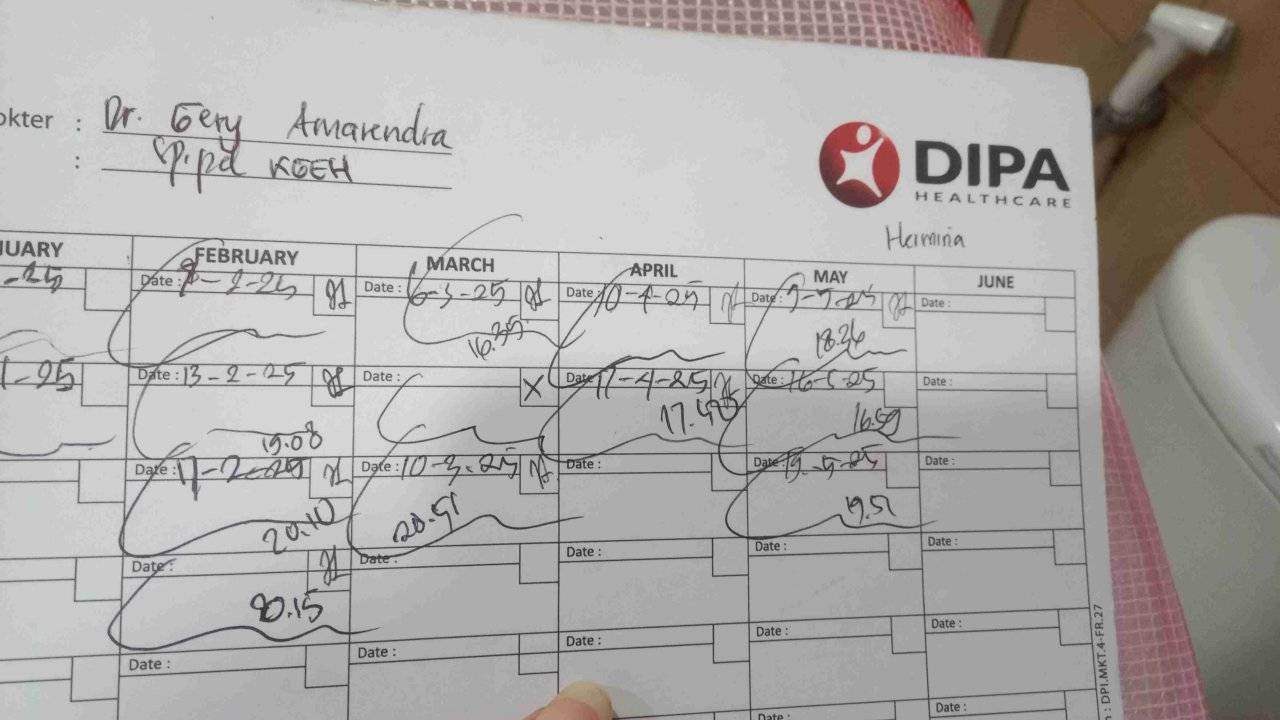 okter : Dr. Gery Amarendra
: Sp.pd KGEH
DIPA
HEALTHCARE
Hermina
NUARY FEBRUARY MARCH APRIL MAY JUNE
-25 Date : 7-2-25 Date : 6-3-25 Date : 10-4-25 Date : 9-5-25 Date :
16.35 18.26
1-25 Date : 13-2-25 Date : X Date : 17-4-25 Date : 16-5-25 Date :
19.08 16.59
Date : 17-2-25 Date : 10-3-25 Date : Date : 19-5-25 Date :
20.10 20.51 19.51
Date : Date : Date : Date : Date :
20.15
Date : Date : Date : Date : Date :
Date : Date :
: DPI.MKT.4-FR.27